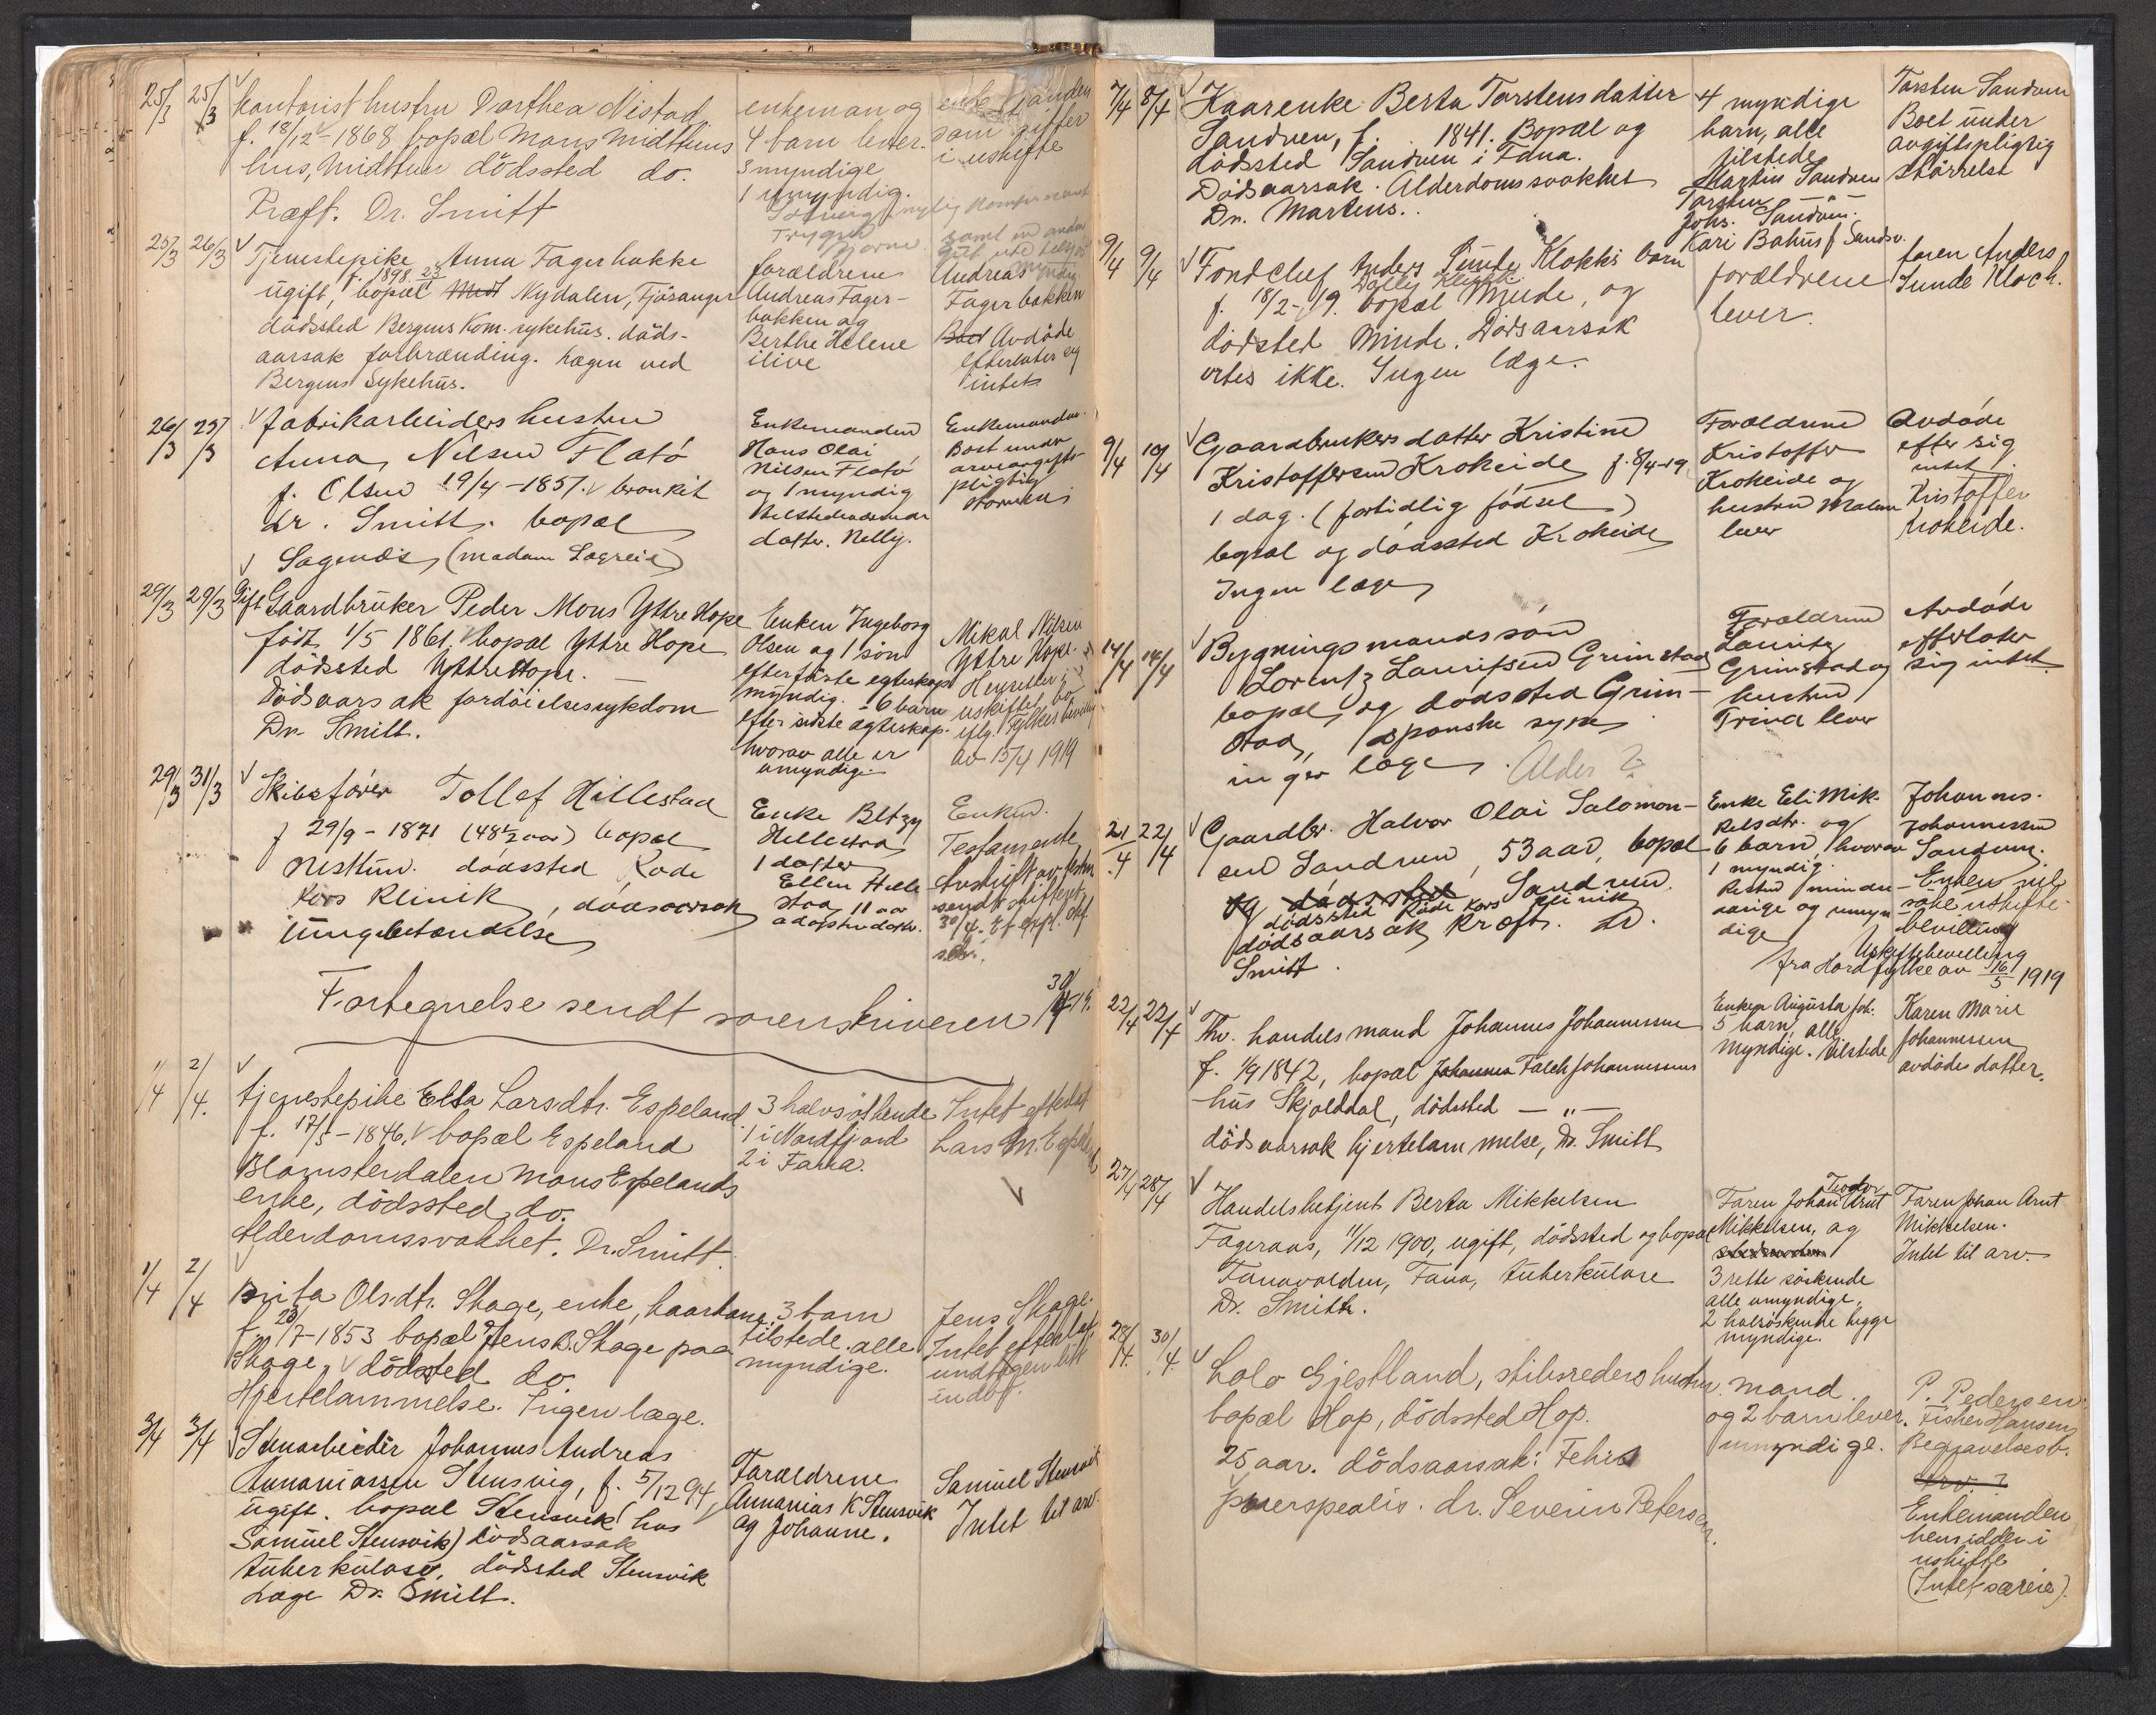 25/3 25/3 kontorist hustru Dorthea Nistad
f. 18/12-1868 bopæl Mons Midttuns
hus, Midttun dödssted do.
Kræft. Dr. Smitt
enkeman og
4 barn lever.
3 myndige
1 umyndig.
som gifter
i uskifte
25/3 26/3 Tjenestepike Anna Fagerbakke
f. 1898 23
ugift, bopæl Nydalen, Fjösanger
dödssted Bergens Kom. sykehus. döds-
aarsak forbrænding. Lægen ved
Bergens Sykehus.
forældrene
Andreas Fager-
bakken og
Berthe Helene
ilive
Andreas
Fagerbakken
Boet Avdöde
efterlater sig
intet
26/3 25/3 Fabrikarbeiders hustru
Anna Nilsen Flatö
f. Olsen 19/4-1857. bronkit
dr. Smitt. bopæl
Sagenæs, (madam Lægreid)
Enkemanden
Hans Olai
Nilsen Flatö
og 1 myndig
tilstedeværende
datter. Nelly.
Enkemanden
Boet under
arveavgifts
pligtig
störrelse
29/3 29/3 Gift Gaardbruker Peder Mons Yttre Hope
födt 1/5 1861. bopæl Yttre Hope
dödssted Yttre Hope.
Dödsaarsak fordöielsessykdom
Dr. Smitt.
Enken Ingeborg
Olsen og 1 sön
efter förste egteskap
myndig. - 6 barn
efter sidste egteskap.
hvorav alle er
umyndig.
Mikal Nilsen
Yttre Hope.
Hensitter i
uskiftet bo
iflg. Fylkets bevilling
av 15/4 1919
29/3 31/3 Skibsförer Tollef Hillestad
f 29/9-1871 (48½ aar) bopæl
Nesttun. dödssted Röde
Kors Klinik, dödsaarsak
lungebetændelse
Enke Betzy
Hillestad
1 datter
Ellen Hille
stad 11 aar
adoptivdatter.
Enken.
Testamente
Avskrift av testm
sendt skifteret.
30/4. Et expl.
Fortegnelse sendt sorenskriveren 30/4 19.
1/4 2/4. tjenestepike Elsa Larsdtr. Espeland
f. 17/5-1846. bopæl Espeland
Blomsterdalen Mons Espelands
enke, dödssted do.
Alderdomssvakhet. Dr. Smitt.
3 halvsöskende
1 i Nordfjord
2 i Fana.
Intet efterlat
Lars M. Espeland
1/4 2/4 Brita Olsdtr. Skage, enke, kaarkone
f. 28/7-1853 bopæl Jens B. Skage paa
Skage, dödssted do
Hjertelammelse. Ingen læge.
3 barn
tilstede. alle
myndige.
Jens Skage.
Intet efterlat
undtagen litt
indbo.
3/4 3/4 Stenarbeider Johannes Andreas
Annaniassen Stensvig, f. 5/12 94,
ugift. bopæl Stensvik (hos
Samuel Stensvik) dödsaarsak
tuberkulose, dödssted Stensvik
Læge Dr. Smitt.
Forældrene
Annanias K Stensvik
og Johanne.
Samuel Stensvik
Intet til arv.
7/4 8/4 Kaarenke Berta Torstensdatter
Sandven, f. 1841. Bopæl og
dödssted Sandven i Fana.
Dödsaarsak. Alderdomssvakhet
Dr. Martens..
4 myndige
barn, alle
tilstede
Martin Sandven
Torsten — " —
Johs. Sandven.
Kari Bahus f Sandv.
Torsten Sandven
Boet under
avgiftspligtig
störrelse
9/4 9/4 Fondchef Anders Sunde Klokks barn
Dolly Klokk
f. 18/2-19. bopæl Minde, og
dödssted Minde. Dödsaarsak
vites ikke. Ingen læge.
forældrene
lever.
faren Anders
Sunde Kloch.
9/4 10/4 Gaardbrukers datter Kristine
Kristoffersen Krokeide f. 8/4-19
1 dag. (fortidlig födsel)
bopæl og dödssted Krokeide
Ingen læge
Forældrene
Kristoffer
Krokeide og
hustru Malene
lever
Avdöde
efter sig
intet.
Kristoffer
Krokeide.
14/4 14/4 Bygningsmands sön
Lorentz Lauritsen Grimstad
bopæl og dödssted Grim-
stad, spanske syke
ingen læge. Alder ?
Forældrene
Lauritz
Grimstad og
hustru
Trina lever
Avdöde
efterlater
sig intet
21/4 22/4 Gaardbr. Halvor Olai Salomon-
sen Sandven, 53 aar, bopæl
og dödssted Sandven
dödssted Röde Kors Klinik
dödsaarsak Kræft. Dr.
Smitt.
Enke Eli Mik-
kelsdtr. og
6 barn, hvorav
1 myndig.
Resten minder-
aarige og umyn
dige
Johannes
Johannessen
Sandven.
Enken vil
söke uskifte-
bevilling
Uskiftebevilling
fra Hordfylke av 16/5 1919
22/4 22/4 Fhv. handelsmand Johannes Johannessen
f. 1/9 1842, bopæl Johannes Falch Johannessens
hus Skjolddal, dödssted — " —
dödsaarsak hjertelammelse, Dr. Smitt
Enken Augusta Joh.
5 barn, alle
myndige. tilstede
Karen Marie
Johannessen
avdödes datter.
27/4 28/4 Handelsbetjent Berta Mikkelsen
Fageraas, 11/12 1900, ugift, dödssted og bopæl
Fanavolden, Fana, tuberkulose
Dr. Smitt.
Faren Johan Teodor Arnt
Mikkelsen, og
3 rette söskende
alle umyndige,
2 halvsöskende begge
myndige.
Faren Johan Arnt
Mikkelsen.
Intet til arv.
28/4. 30/4. Lolo Gjestland, skibsreders hustru
bopæl Hop, dödssted Hop.
25 aar. dödsaarsak: Febris
puerspealis. dr. Severin Petersen.
mand.
og 2 barn lever.
umyndige.
P. Pedersen
Fisher Hansens
Begravelsesb.
Arv ?
Enkemanden
hensidder i
uskifte
(Intet særeie).